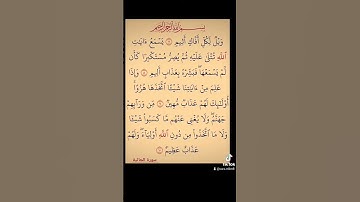 بسم الله الرحمن الرحيم
وَيۡلٞ لِّكُلِّ أَفَّاكٍ أَثِيمٖ ٧ يَسۡمَعُ ءَايَٰتِ
ٱللَّهِ تُتۡلَىٰ عَلَيۡهِ ثُمَّ يُصِرُّ مُسۡتَكۡبِرٗا كَأَن
لَّمۡ يَسۡمَعۡهَاۖ فَبَشِّرۡهُ بِعَذَابٍ أَلِيمٖ ٨ وَإِذَا
عَلِمَ مِنۡ ءَايَٰتِنَا شَيۡـًٔا ٱتَّخَذَهَا هُزُوًاۚ
أُوْلَٰٓئِكَ لَهُمۡ عَذَابٞ مُّهِينٞ ٩ مِّن وَرَآئِهِمۡ
جَهَنَّمُۖ وَلَا يُغۡنِي عَنۡهُم مَّا كَسَبُواْ شَيۡـٔٗا
وَلَا مَا ٱتَّخَذُواْ مِن دُونِ ٱللَّهِ أَوۡلِيَآءَۖ وَلَهُمۡ
عَذَابٌ عَظِيمٌ ١٠
سورة الجاثية
TikTok